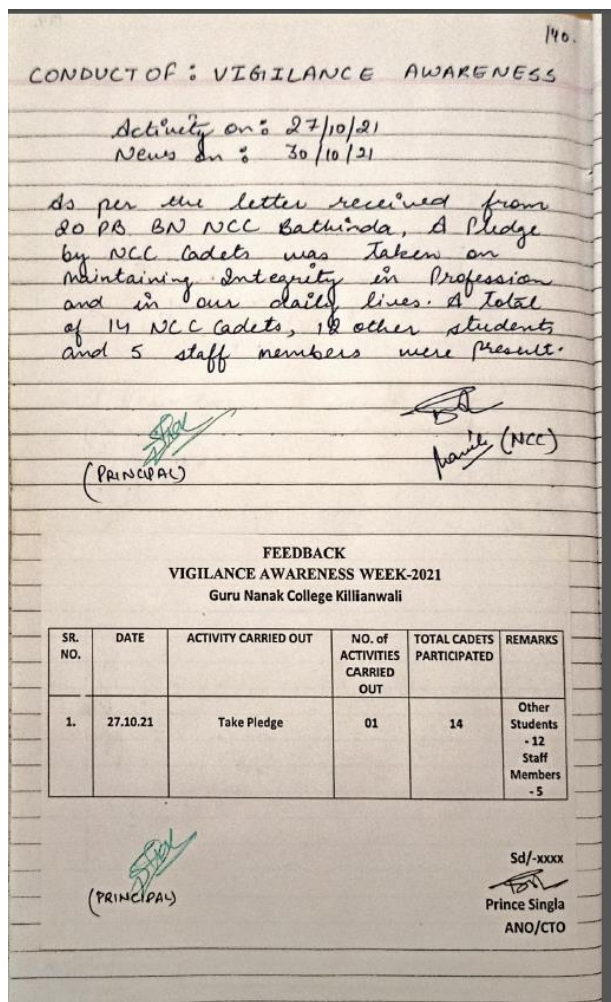 140.
CONDUCT OF : VIGILANCE AWARENESS
Activity on : 27/10/21
News on : 30/10/21
As per the letter received from
20 PB BN NCC Bathinda, A Pledge
by NCC Cadets was Taken on
Maintaining Integrity in Profession
and in our daily lives. A Total
of 14 NCC Cadets, 12 other students
and 5 staff members were present.
(NCC)
(PRINCIPAL)
FEEDBACK
VIGILANCE AWARENESS WEEK-2021
Guru Nanak College Killianwali
SR. NO. DATE ACTIVITY CARRIED OUT NO. of ACTIVITIES CARRIED OUT TOTAL CADETS PARTICIPATED REMARKS
1. 27.10.21 Take Pledge 01 14 Other Students - 12 Staff Members - 5
Sd/-xxxx
(PRINCIPAL)
Prince Singla
ANO/CTO